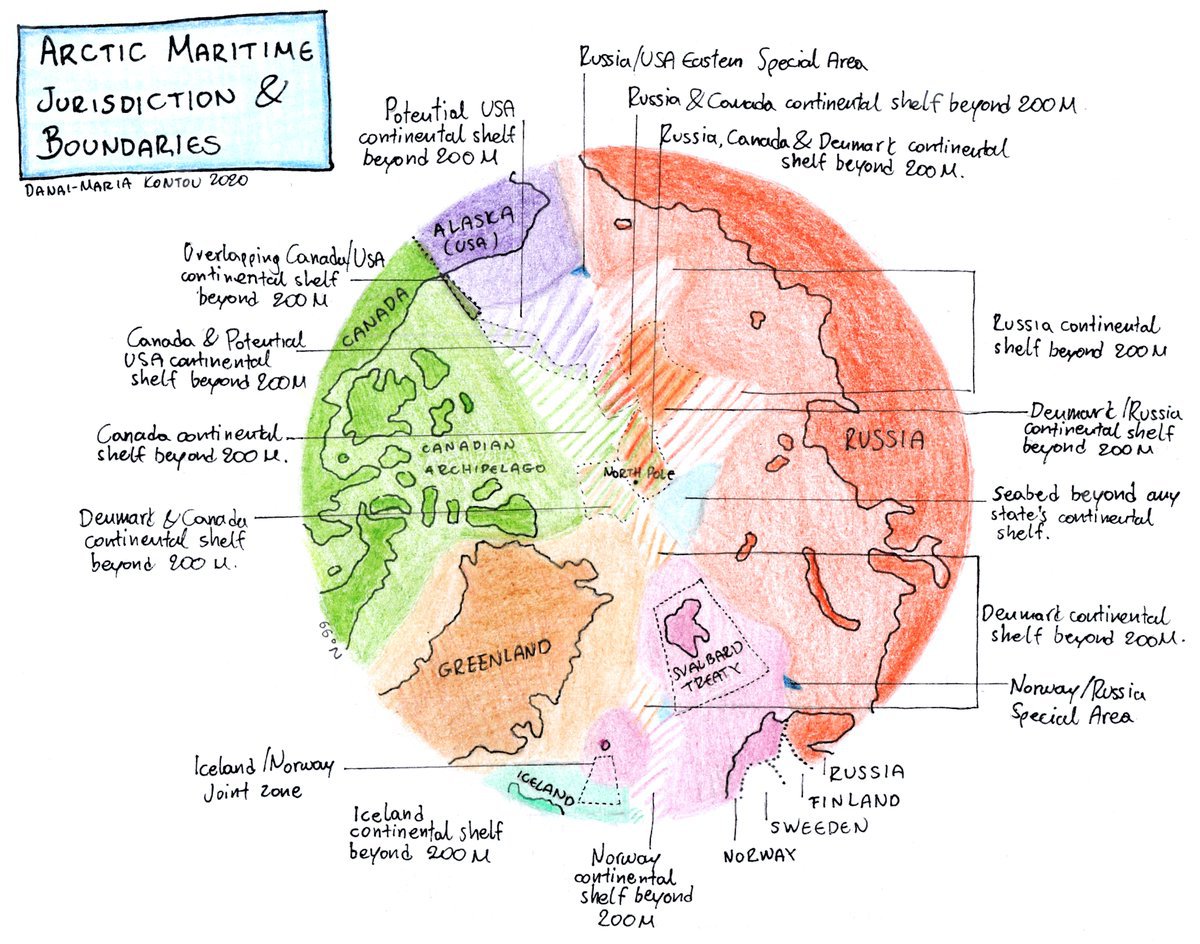 ARCTIC MARITIME
JURISDICTION &
BOUNDARIES
DANAI-MARIA KONTOU 2020
Russia/USA Eastern Special Area
Russia & Canada continental shelf beyond 200 M.
Russia, Canada & Denmark continental
shelf beyond 200 M.
Potential USA
continental shelf
beyond 200 M
ALASKA
(USA)
Overlapping Canada/USA
continental shelf
beyond 200 M
CANADA
Canada & Potential
USA continental
shelf beyond 200M
Russia continental
shelf beyond
200 M
Canada continental
shelf beyond 200 M.
CANADIAN
ARCHIPELAGO
NORTH POLE
RUSSIA
Denmark/Russia
continental shelf
beyond 200 M
Seabed beyond any
state's continental
shelf.
Denmark & Canada
continental shelf
beyond 200 M.
66°N
GREENLAND
SVALBARD
TREATY
Denmark continental
shelf beyond 200M.
Norway/Russia
Special Area
Iceland/Norway
Joint zone
ICELAND
Iceland
continental shelf
beyond 200 M
Norway
continental
shelf beyond
200 M
RUSSIA
FINLAND
SWEDEN
NORWAY